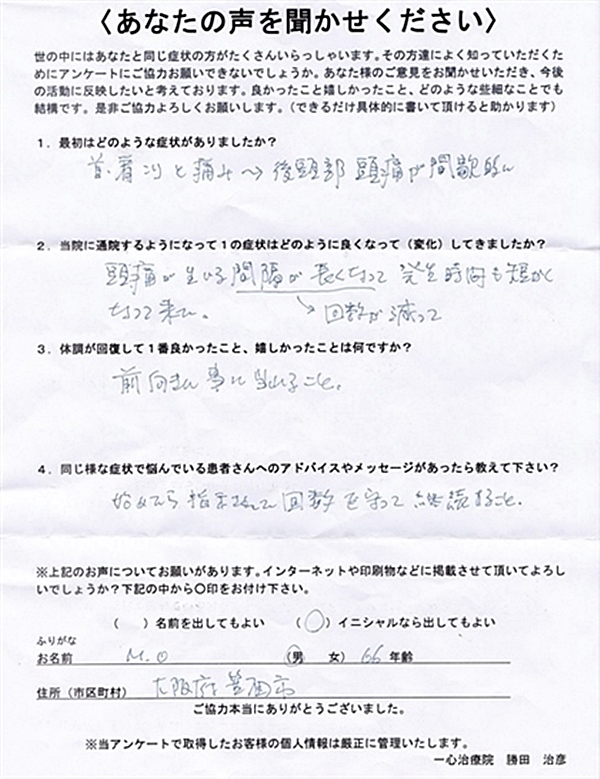 〈あなたの声を聞かせください〉
世の中にはあなたと同じ症状の方がたくさんいらっしゃいます。その方達によく知っていただくた
めにアンケートにご協力お願いできないでしょうか。あなた様のご意見をお聞かせいただき、今後
の活動に反映したいと考えております。良かったこと嬉しかったこと、どのような些細なことでも
結構です。是非ご協力よろしくお願いします。（できるだけ具体的に書いて頂けると助かります）
１．最初はどのような症状がありましたか？
首・肩こりと痛み→後頭部頭痛が間歇的に
２．当院に通院するようになって１の症状はどのように良くなって（変化）してきましたか？
頭痛が生じる間隔が長くなって発生時間も短かく
なって来た。 →回数が減って
３．体調が回復して１番良かったこと、嬉しかったことは何ですか？
前向きに事に当れること。
４．同じ様な症状で悩んでいる患者さんへのアドバイスやメッセージがあったら教えて下さい？
始めたら 回数を守って継続すること。
※上記のお声についてお願いがあります。インターネットや印刷物などに掲載させて頂いてよろし
いでしょうか？下記の中から〇印をお付け下さい。
（ ）名前を出してもよい （〇）イニシャルなら出してもよい
ふりがな
お名前 M.O （男 女） 66 年齢
住所（市区町村） 大阪府箕面市
ご協力本当にありがとうございました。
※当アンケートで取得したお客様の個人情報は厳正に管理いたします。
一心治療院 勝田 治彦